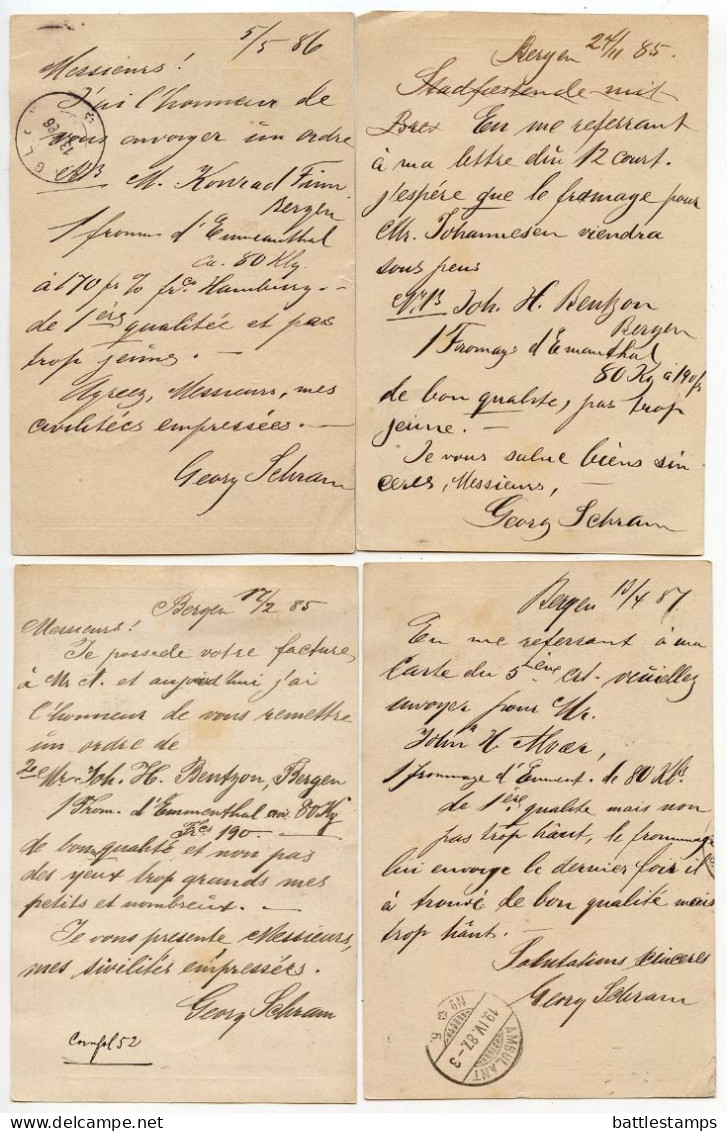 5/5 86
Messieurs!
J'ai l'honneur de
vous envoyer un ordre
M. Konrad Finn
Bergen
1 fromm d'Emmeanthal
ca. 80 Klg.
à 170 fr % frco Hamburg.-
de 1ère qualitée et pas
trop jeune. -
Agreez, Messieurs, mes
civilitées empressées. -
Georg Schram
Bergen 24/11 85.
En me referrant
à ma lettre du 12 court.
j'espére que le fromage pour
Mr. Johannesen viendra
sous peus
Joh. H. Bentzon
Bergen
1 Fromage d'Emanthal
80 Kg à 190 fr
de bon qualite, pas trop
jeune. -
Je vous salue biens sin-
ceres, Messieurs, -
Georg Schram
Bergen 17/2 85
Messieurs!
Je possede votre facture,
à Mr A. et aujourd'hui j'ai
l'honneur de vous remettre
un ordre de
Mr Joh. H. Bentzon, Bergen
1 From. d'Emmenthal 80 Kg
Frcs 190. -
de bon qualité et non pas
des yeux trop grands mes
petits et nombreux. -
Je vous presente Messieurs,
mes sivilités empressées.
Georg Schram
52
Bergen 13/4 87
En me referrant à ma
Carte du 5ième ct. veuillez
envoyer pour Mr.
John H.
1 frommage d'Emment. de 80 Klo
de 1ère qualite mais non
pas trop hâut, le frommage
lui envoye le dernier fois il
à trouvé de bon qualité mais
trop hâut. -
Salutations sinceres
Georg Schram
AMBULANT
19.IV.87.-3
No 6.
delcampe.net
battlestamps